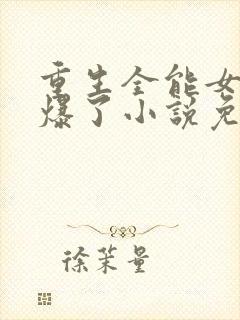 重生全能女
爆了小說免
徐茉量